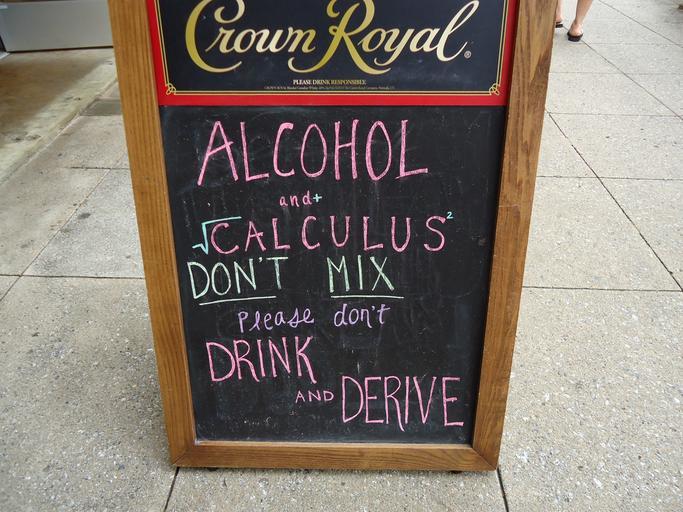 Crown Royal®
PLEASE DRINK RESPONSIBLY.
ALCOHOL
and+
√CALCULUS²
DON'T MIX
Please don't
DRINK
AND DERIVE